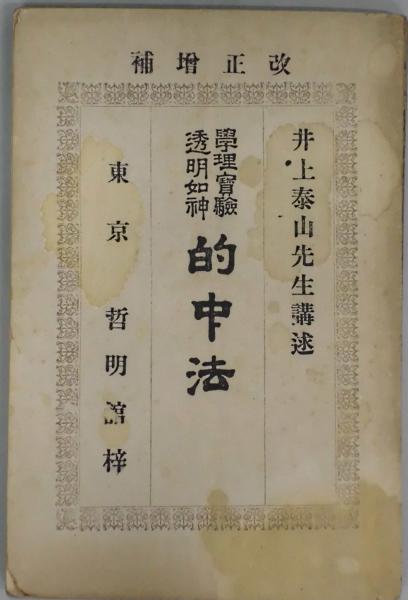 改正增補
井上泰山先生講述
學理實驗
透明如神
的中法
東京 哲明館梓